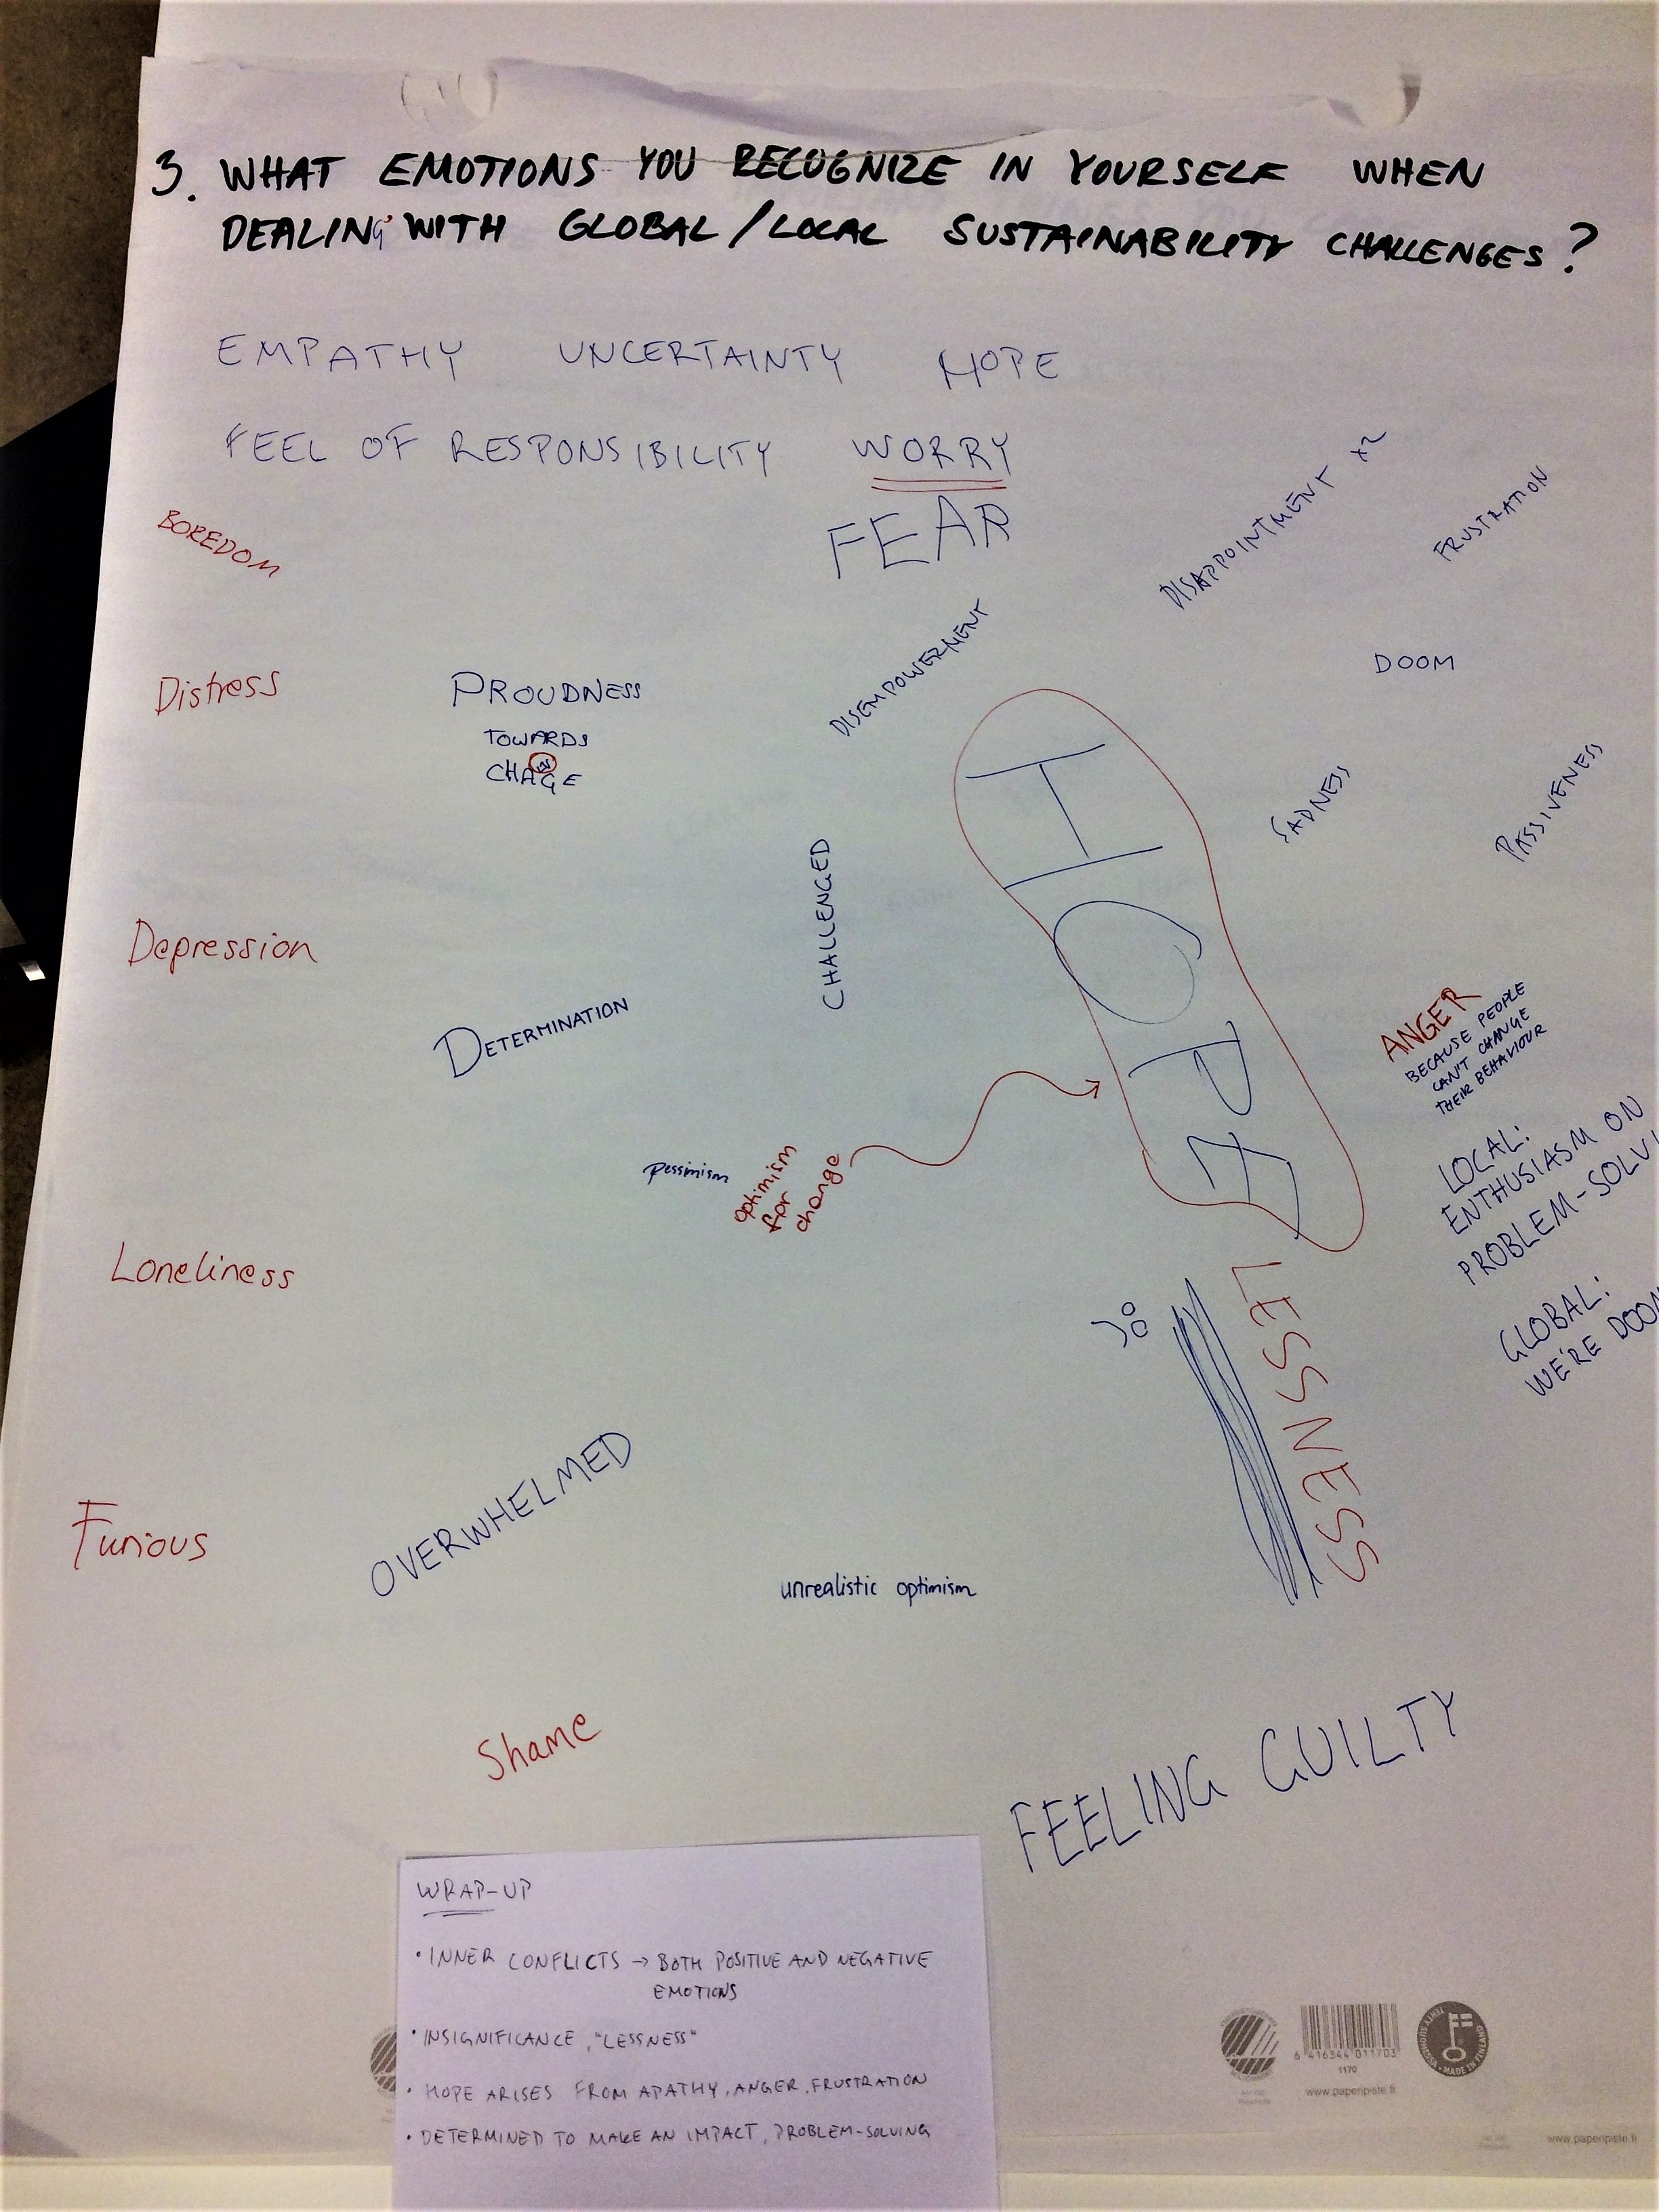 3. WHAT EMOTIONS YOU RECOGNIZE IN YOURSELF WHEN
DEALING WITH GLOBAL/LOCAL SUSTAINABILITY CHALLENGES?
EMPATHY UNCERTAINTY HOPE
FEEL OF RESPONSIBILITY WORRY
FEAR
DISAPPOINTMENT x2
FRUSTRATION
BOREDOM
DISEMPOWERMENT
DOOM
Distress
PROUDNESS
TOWARDS
CHANGE
SADNESS
PASSIVENESS
CHALLENGED
HOPE
LESSNESS
Depression
DETERMINATION
ANGER
BECAUSE PEOPLE
CAN'T CHANGE
THEIR BEHAVIOUR
pessimism
optimism
for
change
LOCAL:
ENTHUSIASM ON
PROBLEM-SOLVI
GLOBAL:
WE'RE DOOM
Loneliness
Furious
OVERWHELMED
unrealistic optimism
Shame
FEELING GUILTY
WRAP-UP
• INNER CONFLICTS → BOTH POSITIVE AND NEGATIVE
EMOTIONS
• INSIGNIFICANCE, "LESSNESS"
• HOPE ARISES FROM APATHY, ANGER, FRUSTRATION
• DETERMINED TO MAKE AN IMPACT, PROBLEM-SOLVING
6 416344 011703
1170
www.paperipiste.fi
MADE IN FINLAND
www.paperipiste.fi